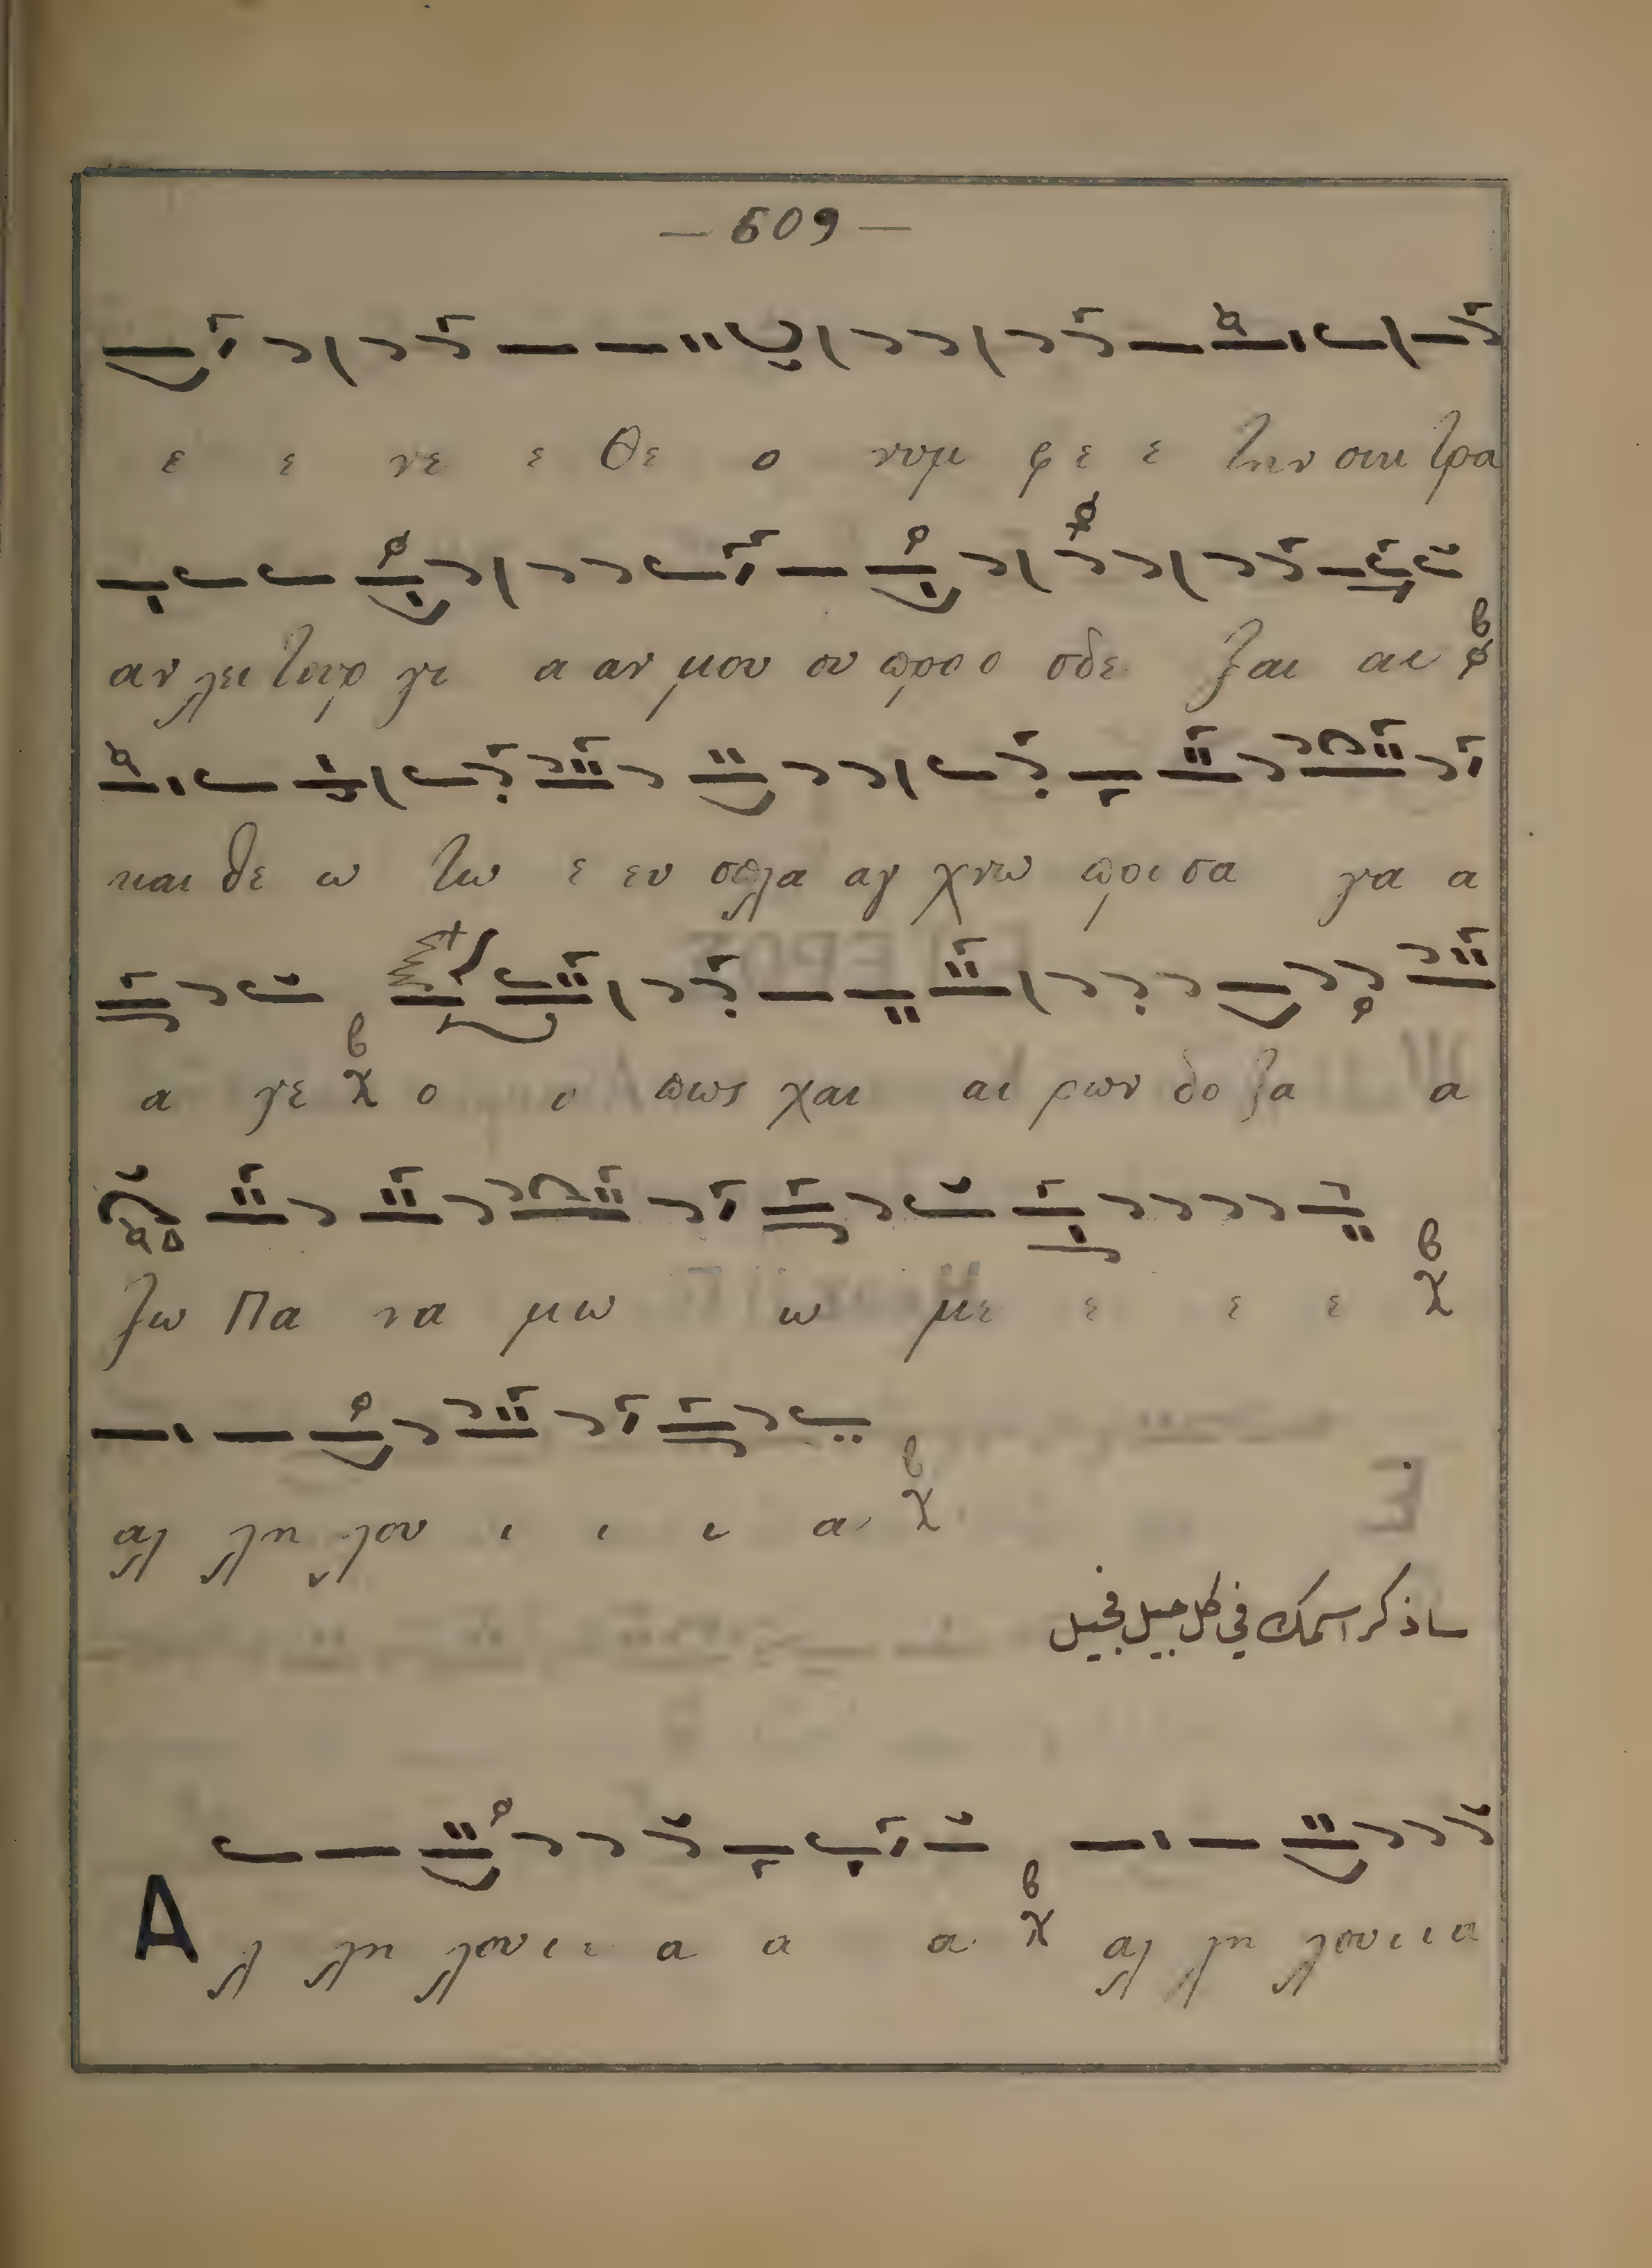 — 609 —
ε ε νε ε Θε ο νυμ φε ε την οικ τρα
αν λει τουρ γι α αν μου ου προ ο σδε ξαι αι
και θε ω τω ε ευ σπλα αγ χνω προ σα γα α
α γε ο ο πως χαι αι ρων δο ξα α
ζω Πα να μω ω με ε ε ε
αλ λη λου ι ι ι α
ساذكر اسمك في كل جيل فجيل
Α λ λη λου ι ι α α α αλ λη λου ι ι α